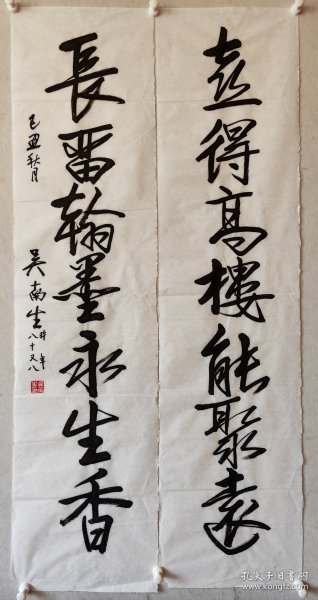 喜得高樓能聚遠
長畱翰墨永生香
己丑秋月
吴南生時年
八十又八
孔夫子旧书网
www.kongfz.com